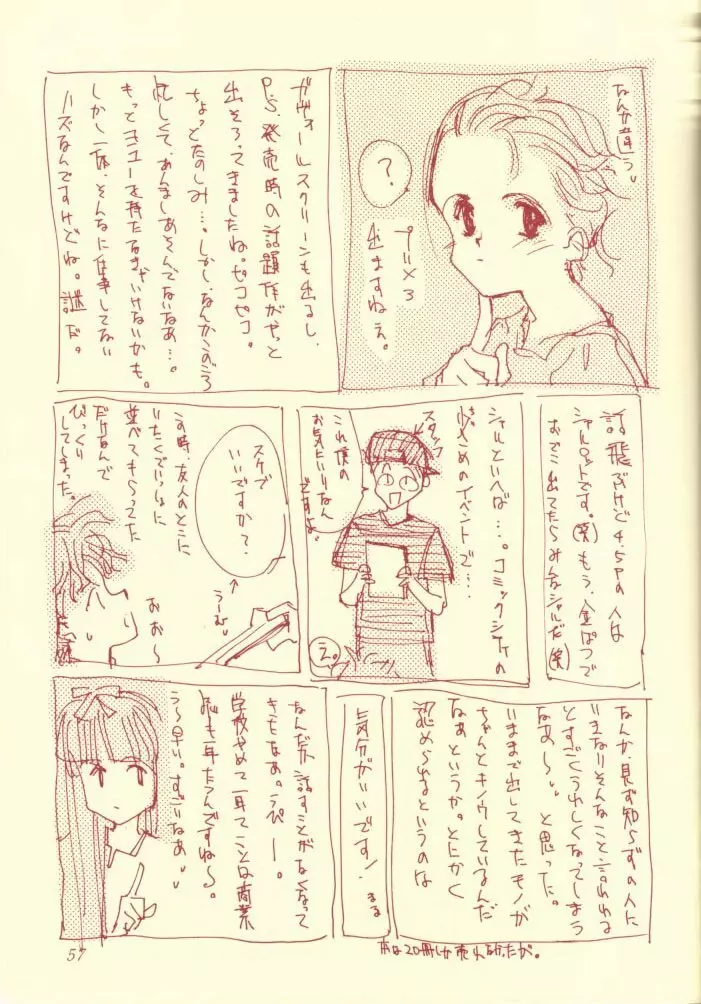 なんか違う。
?
プリメ3
出ますねぇ。
ヴァールスクリーンも出るし、
P.S.発売時の話題作がやっと
出そろってきましたね。ピコピコ。
ちょっとたのしみ…。しかし、なんかこのごろ
忙しくて、あんましあそんでないなあ…。
もっとヨユーを持たなきゃいけないかも。
しかし一体、そんなに仕事してない
ハズなんですけどね。謎だ。
話飛ぶけど4、5Pの人は
シャルロットです。(笑)もう、金ぱつで
おでこ出てたらみんなシャルだ(笑)
シャルといへば…。コミックシティの
少女さめのイベントで…
スタッフ
これ僕の
お気にいりなん
ですよ。
え。
スケブ
いいですか?
うーむ
この時、友人のとこに
いたくでいっしょに
並べてもらってた
だけなんで
びっくり
してしまった。
おお〜
なんか、見ず知らずの人に
いきなりそんなこと言われる
とすごくうれしくなってしまう
なあ〜。と思った。
いままで出してきたモノが
ちゃんとキノウしているんだ
なぁというか。とにかく
認められるというのは
気分がいいです!
まる
本は20冊しか売れなかったが。
なんだか話すことがなくなって
きたなあ。うぴー。
学校やめて一年てことは商業
誌も一年たつんですね〜。
う〜早い。すごいなあ。
57